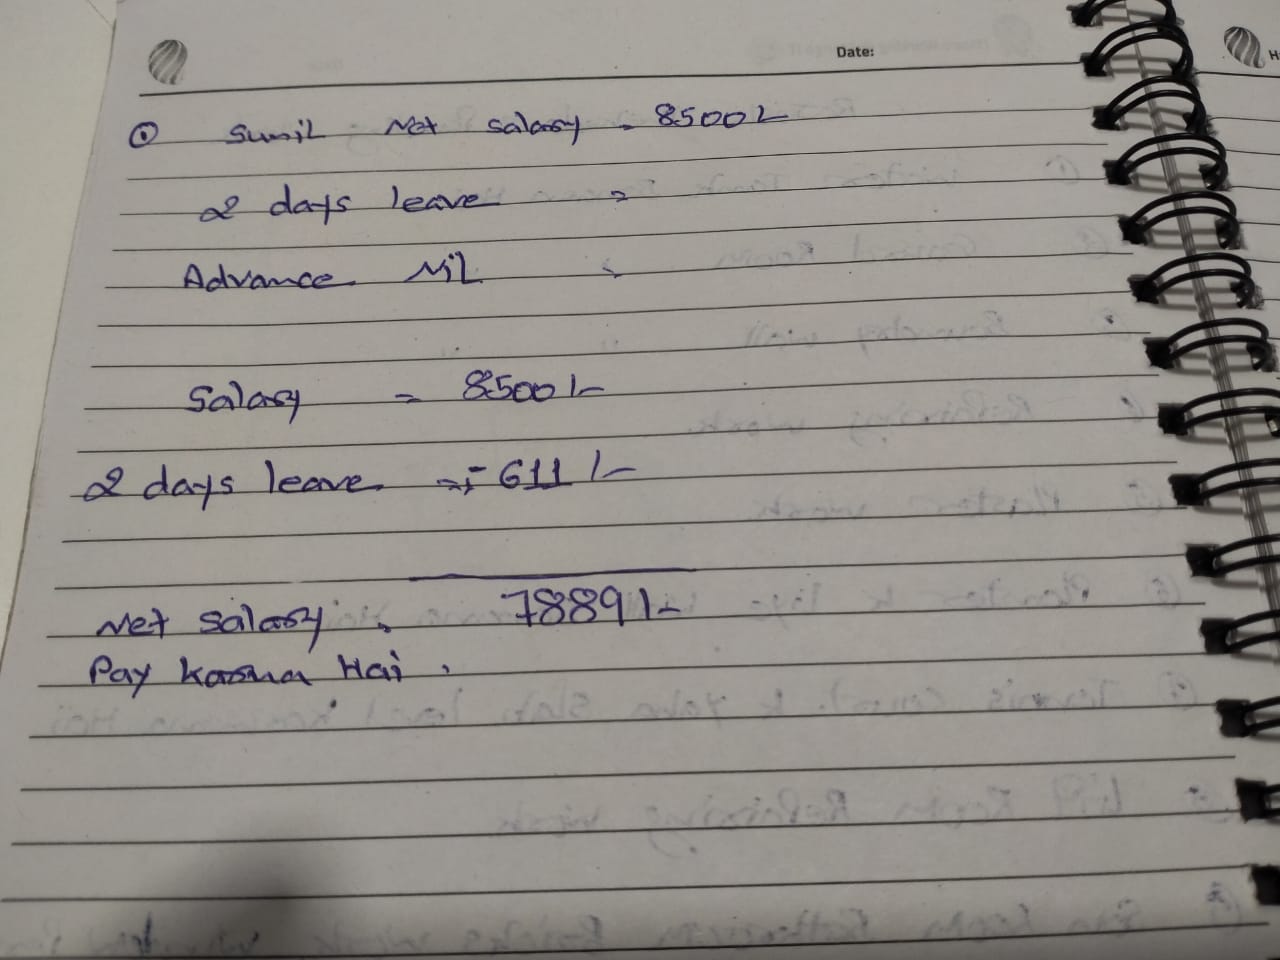 Date:
① Sunil Net Salary = 8500/-
2 days leave =
Advance Nil =
Salary = 8500/-
2 days leave = - 611/-
Net Salary = 7889/-
Pay Karna Hai .